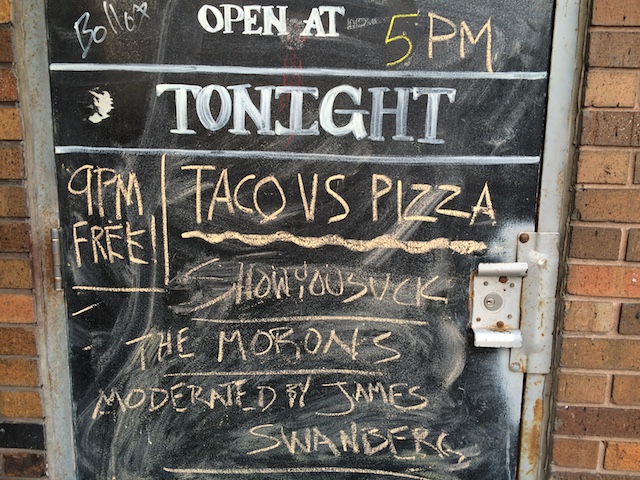 Bollox
OPEN AT 5 PM
TONIGHT
9PM
FREE!
TACO VS PIZZA
SHOWYOUSUCK
THE MORONS
MODERATED BY JAMES
SWANBERG